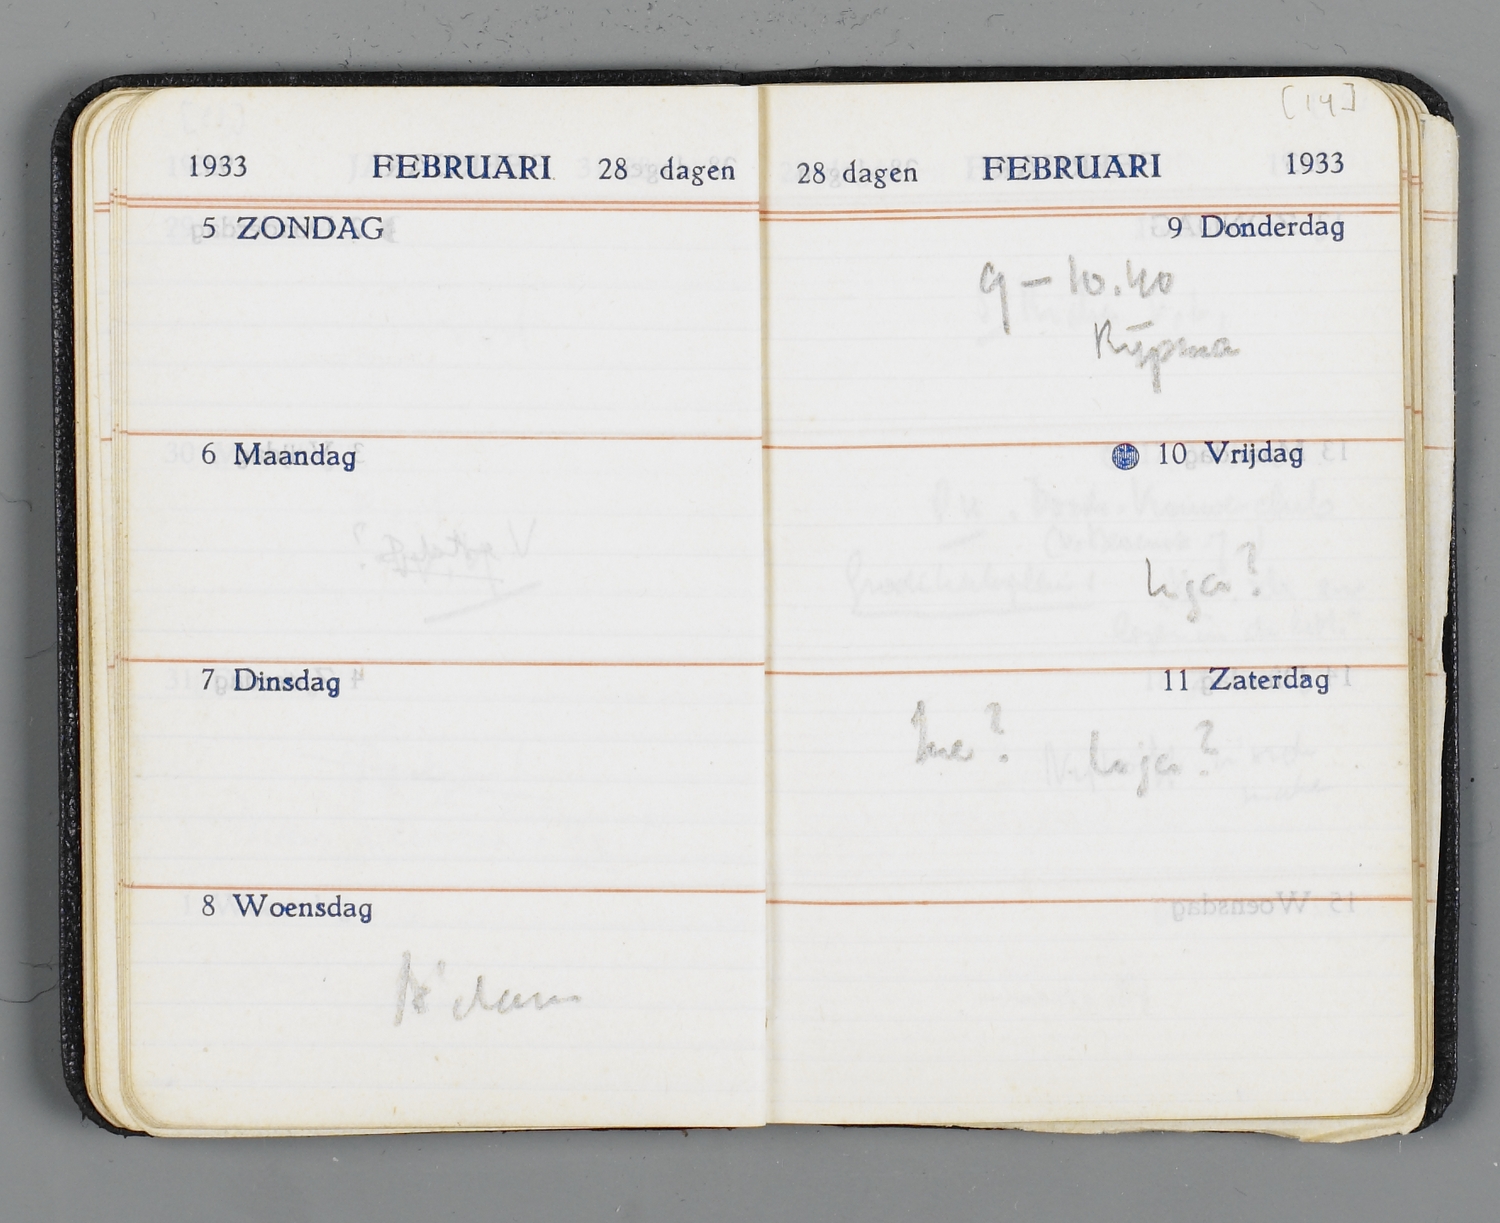 [14]
1933 FEBRUARI 28 dagen
5 ZONDAG
6 Maandag
7 Dinsdag
8 Woensdag
28 dagen FEBRUARI 1933
9 Donderdag
9 — 10.40
Rijpma
10 Vrijdag
Liga?
11 Zaterdag
Liga?